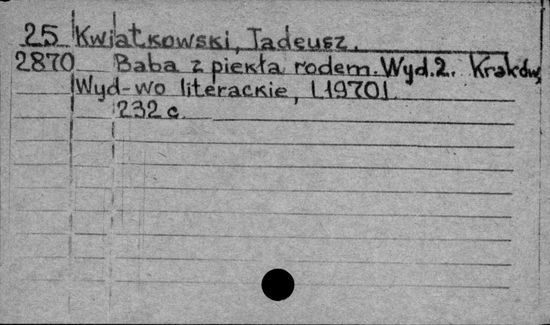 25 Kwiatkowski, Tadeusz.
2870 Baba z piekła rodem. Wyd. 2. Kraków,
Wyd-wo literackie, [1970].
232 c.